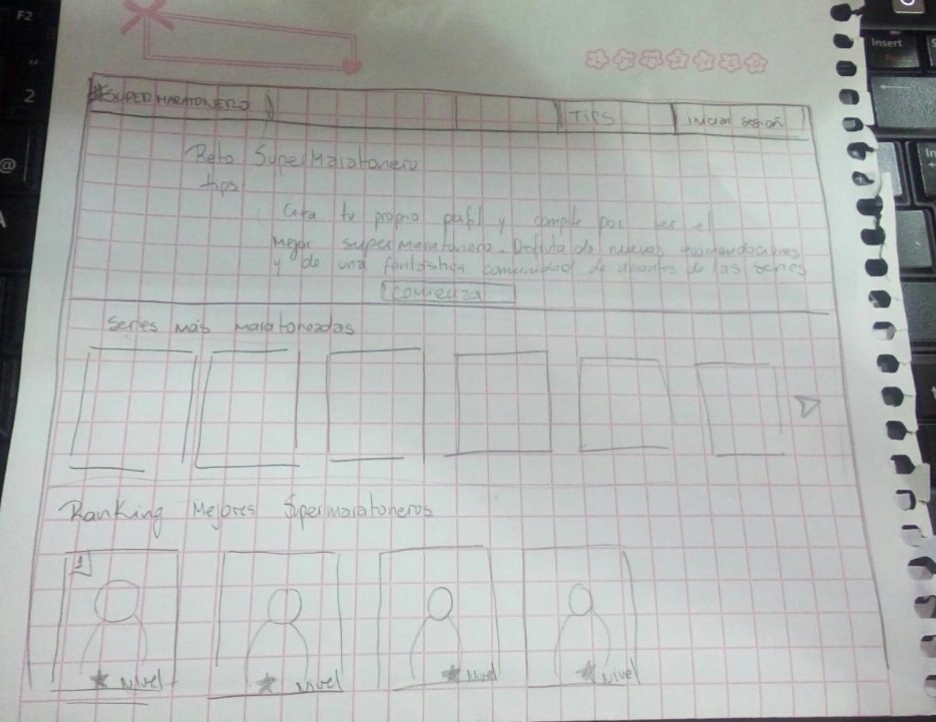 F2
Insert
2
@
#SUPERMARATONERO
TIPS
iniciar sesión
Reto SuperMaratonero
tips
Crea tu propio perfil y compite por ser el
mejor supermaratonero. Disfruta de nuevas recomendaciones
y de una fantástica comunidad de amantes de las series
Comienza
Series más maratoneadas
Ranking Mejores Supermaratoneros
1
Nivel
Nivel
Nivel
Nivel